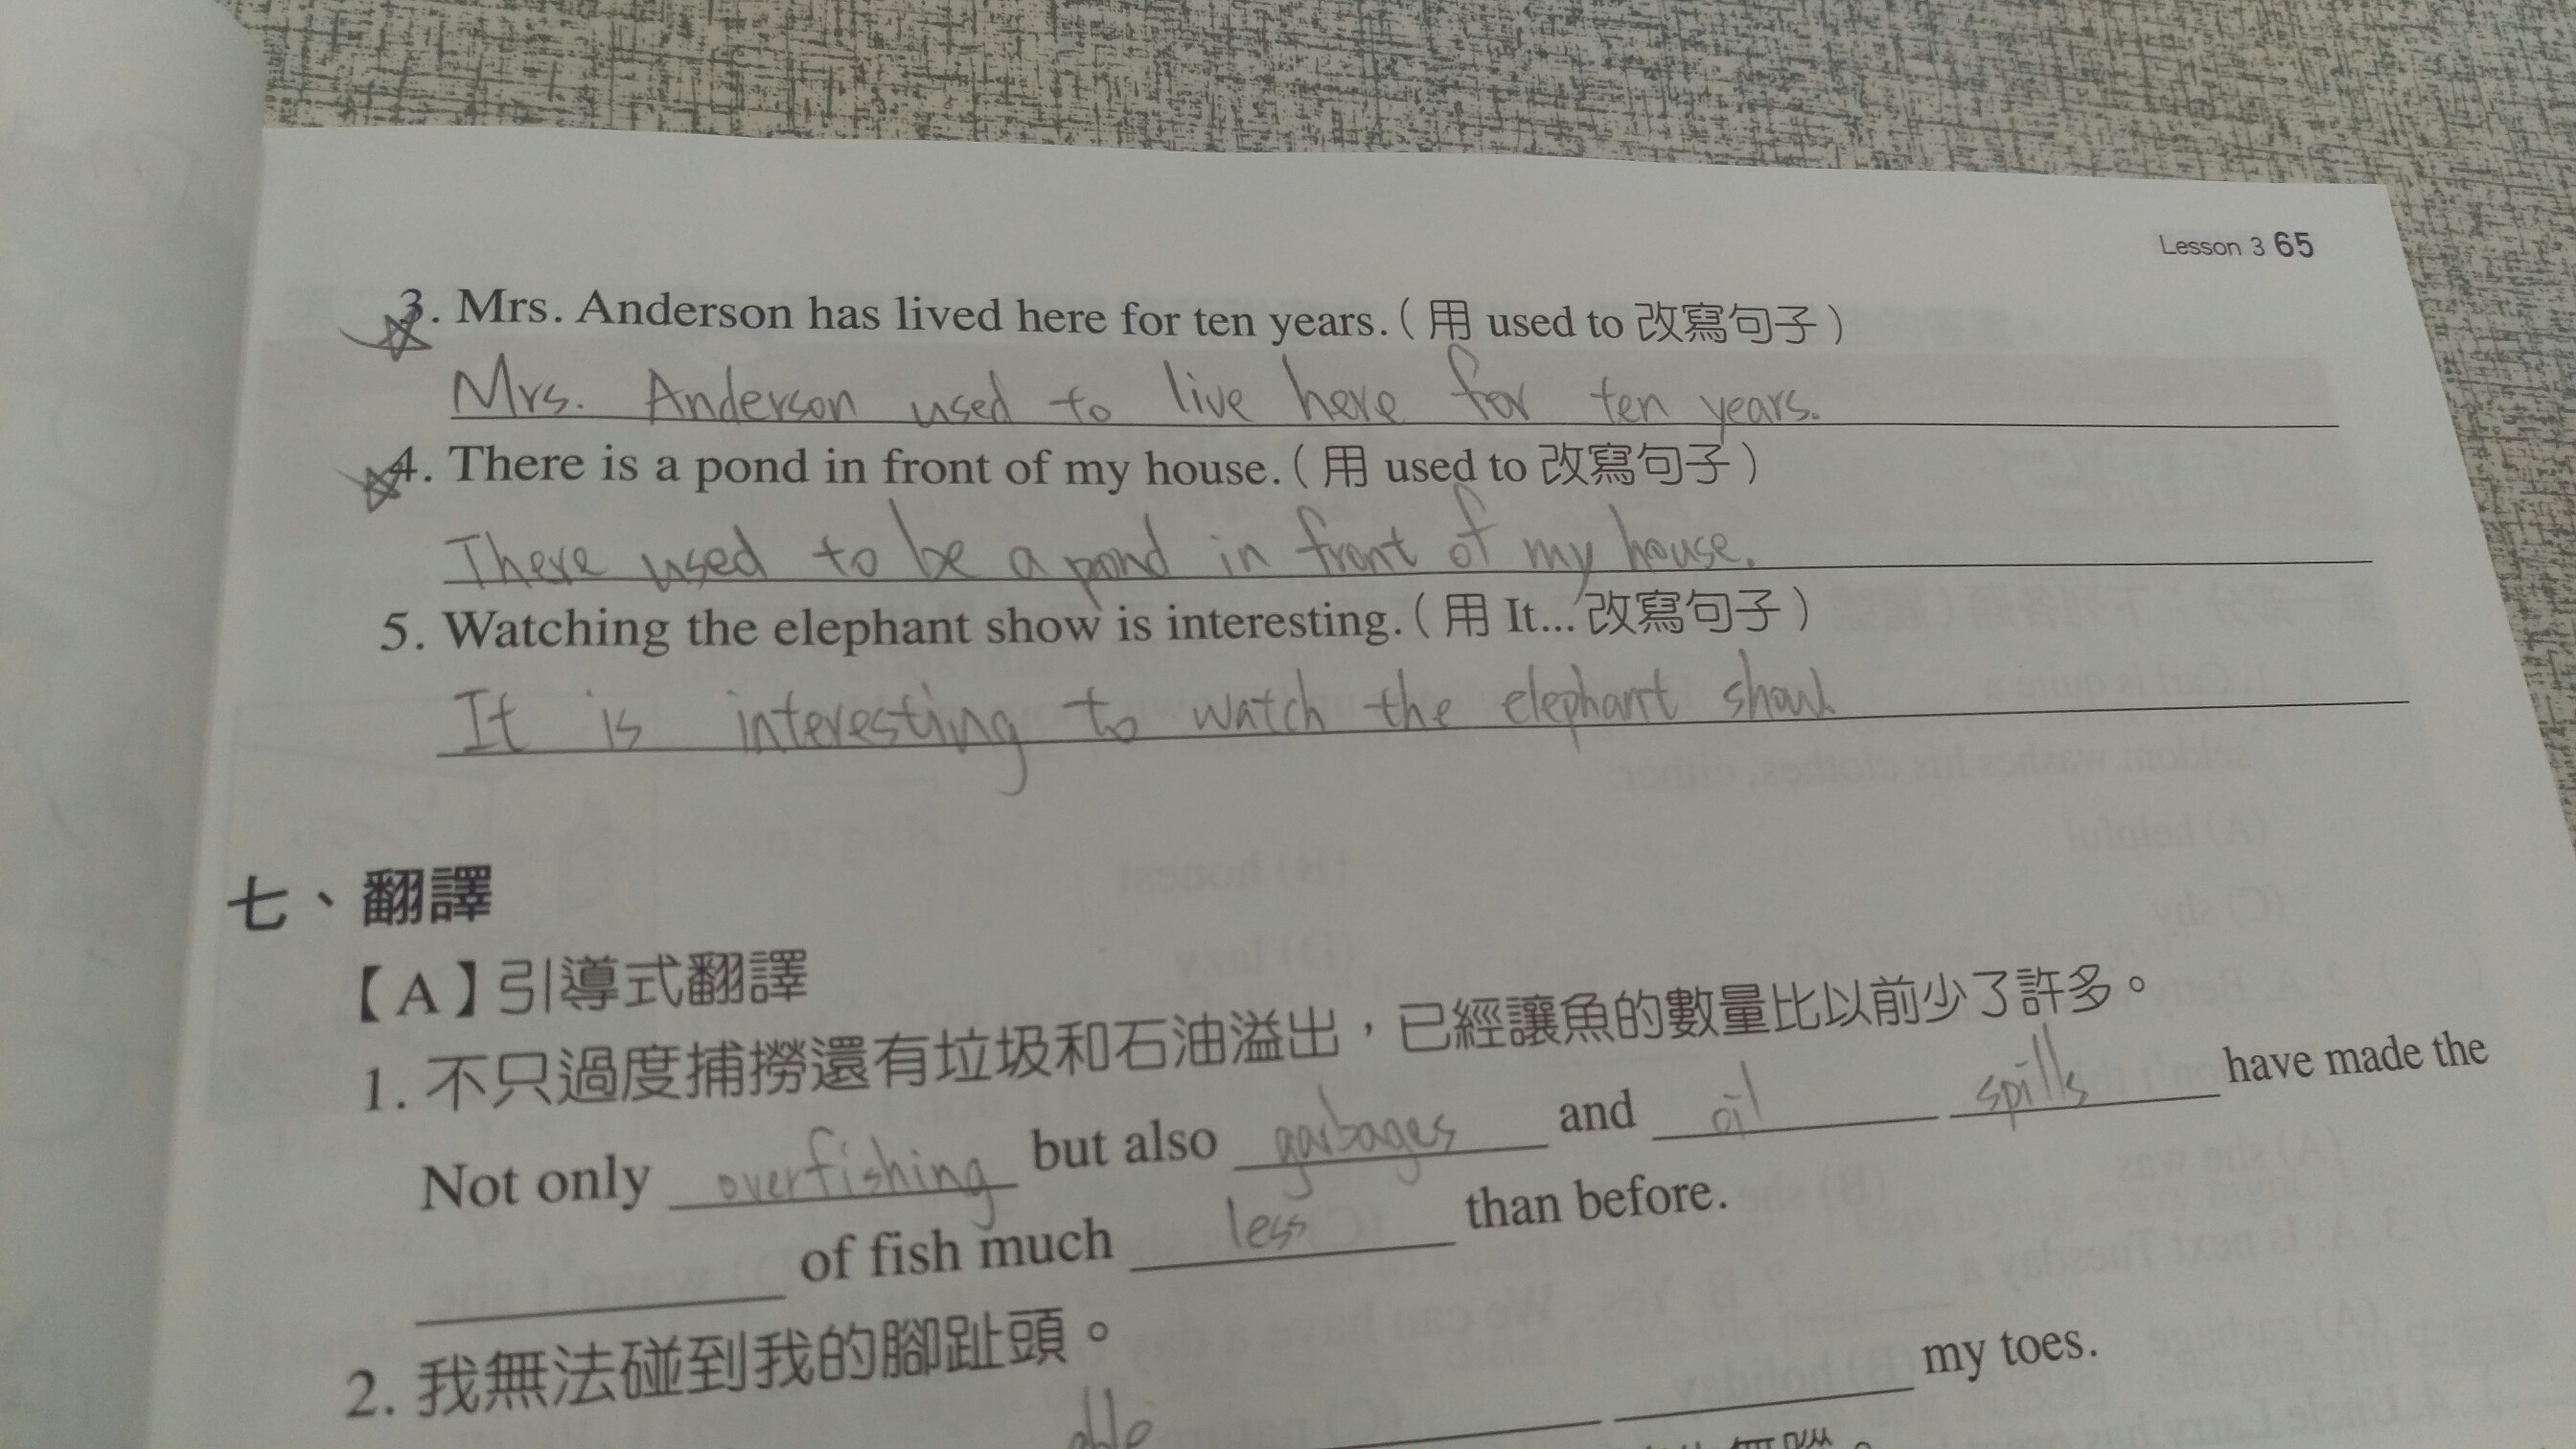 Lesson 3 65
3. Mrs. Anderson has lived here for ten years.(用 used to 改寫句子)
Mrs. Anderson used to live here for ten years.
4. There is a pond in front of my house.(用 used to 改寫句子)
There used to be a pond in front of my house.
5. Watching the elephant show is interesting.(用 It... 改寫句子)
It is interesting to watch the elephant show.
七、翻譯
【A】引導式翻譯
1. 不只過度捕撈還有垃圾和石油溢出,已經讓魚的數量比以前少了許多。
Not only overfishing but also garbages and oil spills have made the
of fish much less than before.
2. 我無法碰到我的腳趾頭。
able my toes.